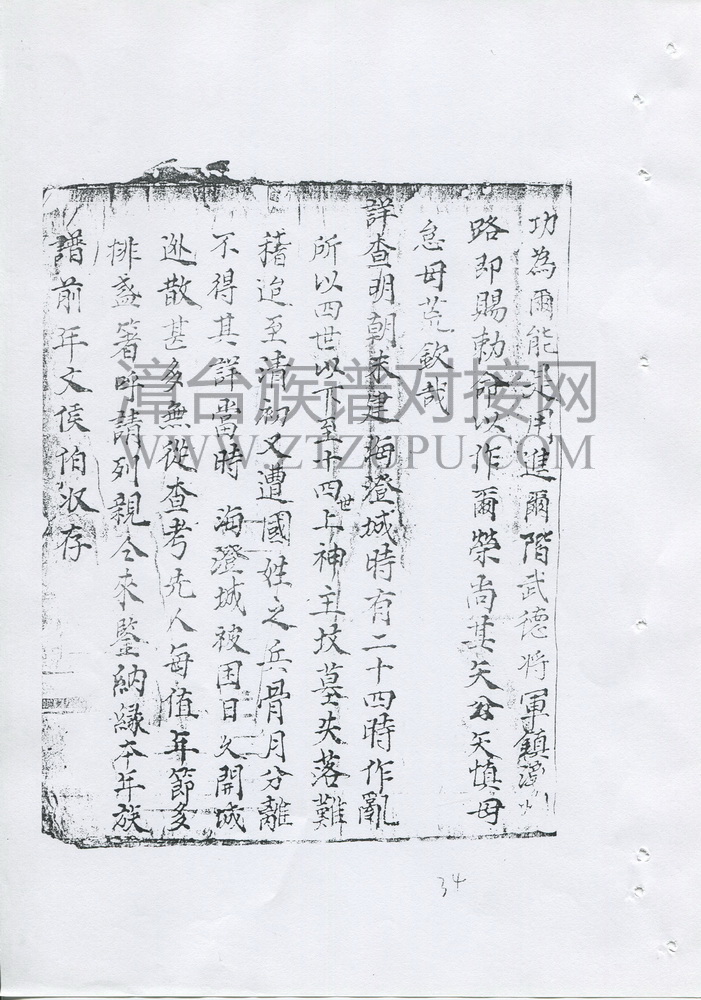 功為爾能進爾階武德將軍鎮漳
路即賜勅命以作爾榮尚其矢公矢慎毋
怠毋荒欽哉
詳查明朝未建海澄城時有二十四時作亂
所以四世以下至十四世上神主坟墓失落難
稽迨至清初又遭國姓之兵骨月分離
不得其詳當時 海澄城被困日久開城
逊散甚多無從查考先人每值年節多
排盞箸呼請列親仝來鑒納緣本年族
譜前年文侯伯收存
漳台族谱对接网
WWW.ZTZUPU.COM
34